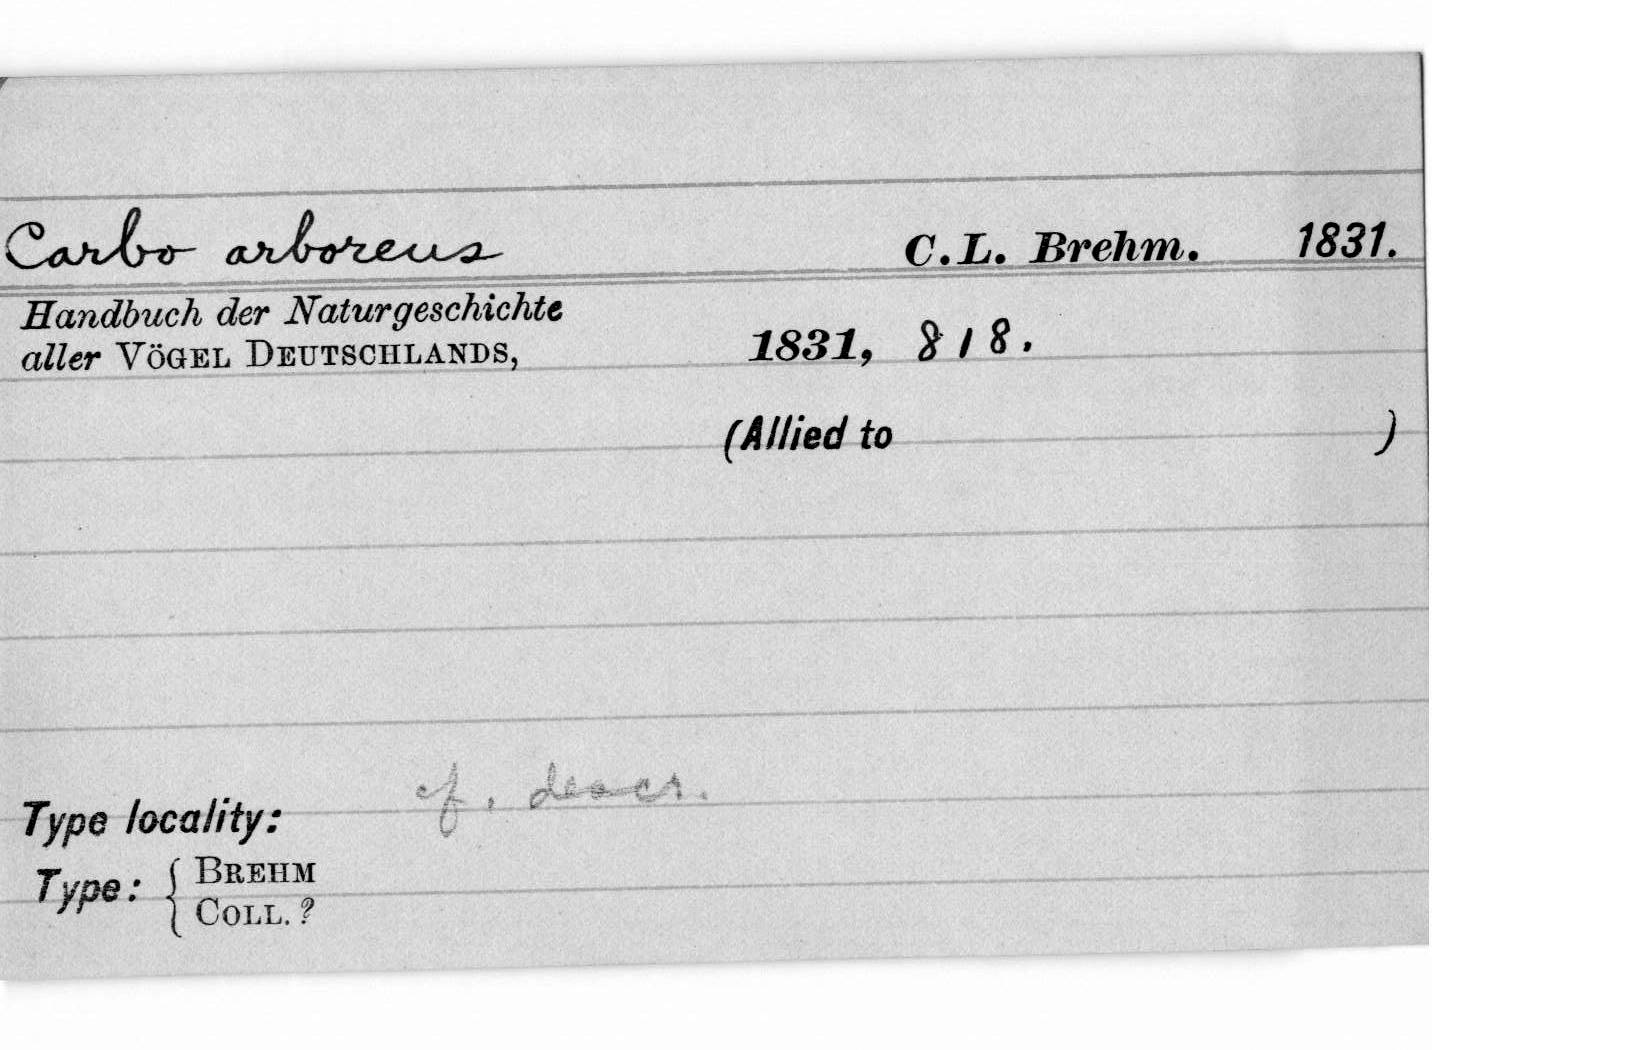 Carbo arboreus C.L. Brehm. 1831.
Handbuch der Naturgeschichte
aller VÖGEL DEUTSCHLANDS, 1831, 818.
(Allied to )
Type locality: cf. descr.
Type: { BREHM
COLL. ?